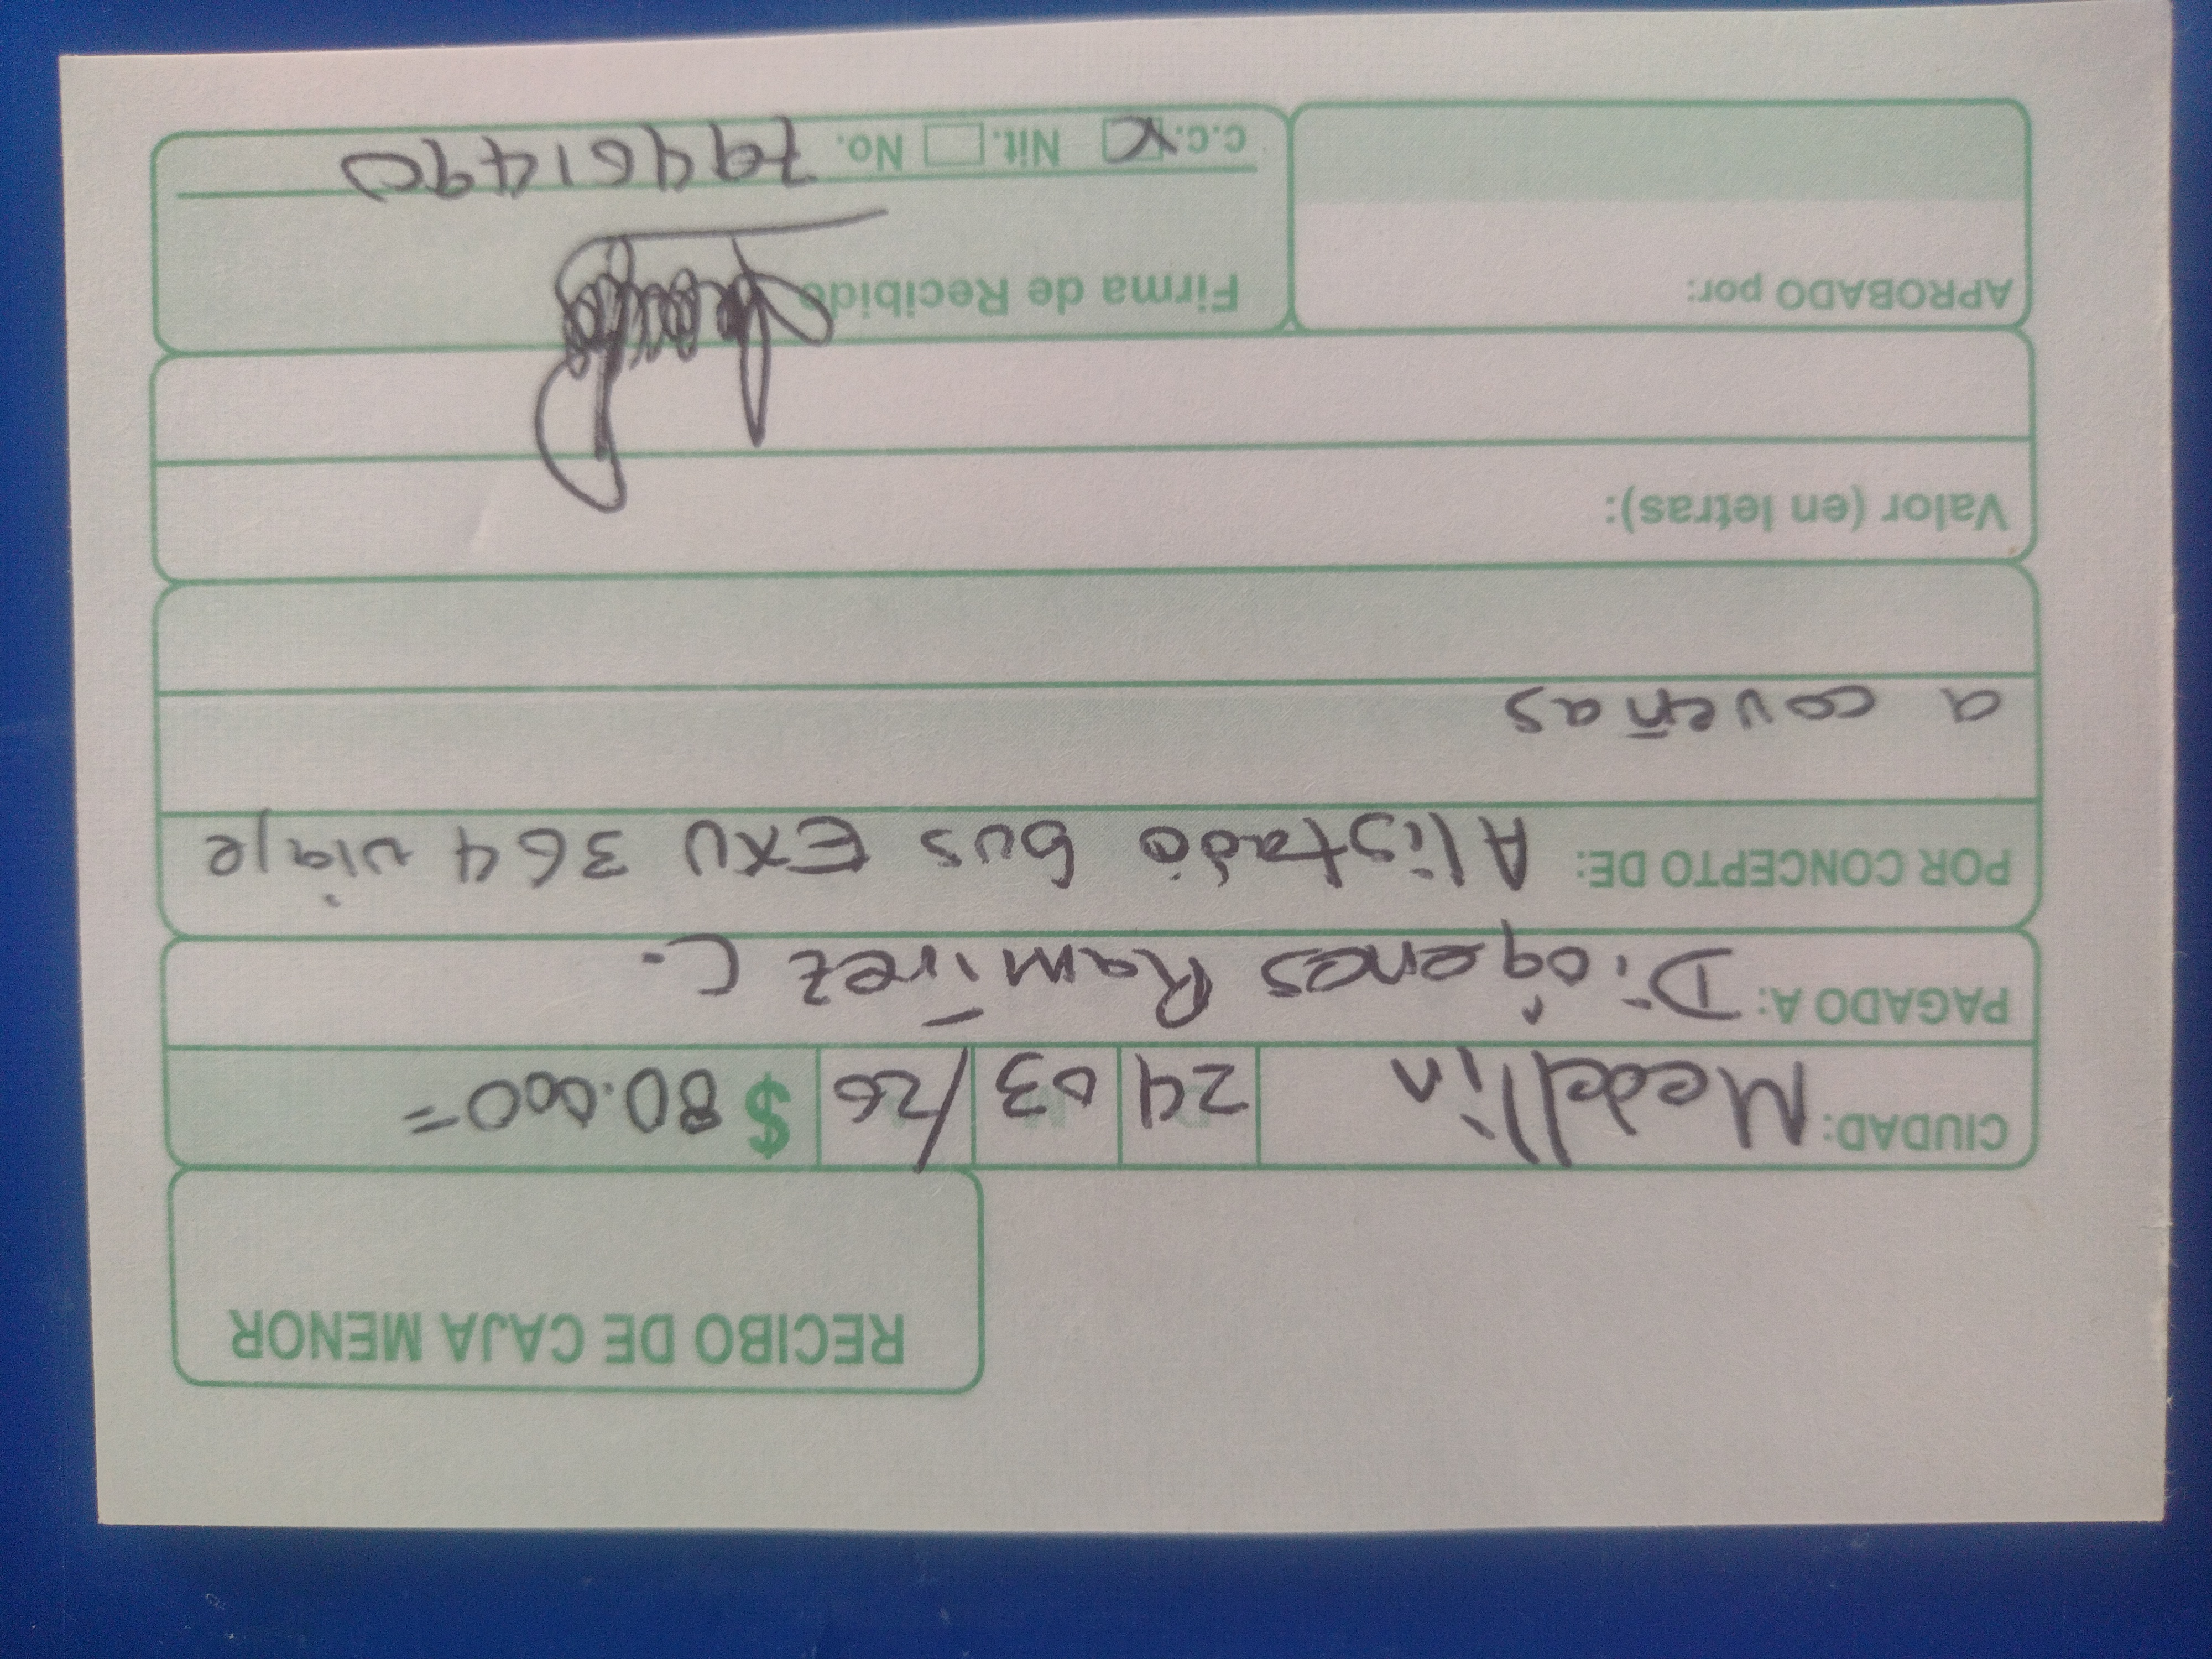 RECIBO DE CAJA MENOR
CIUDAD: Medellin 24 03 /26 $ 80.000=
PAGADO A: Diógenes Ramírez C.
POR CONCEPTO DE: Alistado bus EXU 364 viaje
a coveñas
Valor (en letras):
APROBADO por: Firma de Recibido
C.C. X Nit. No. 79461490